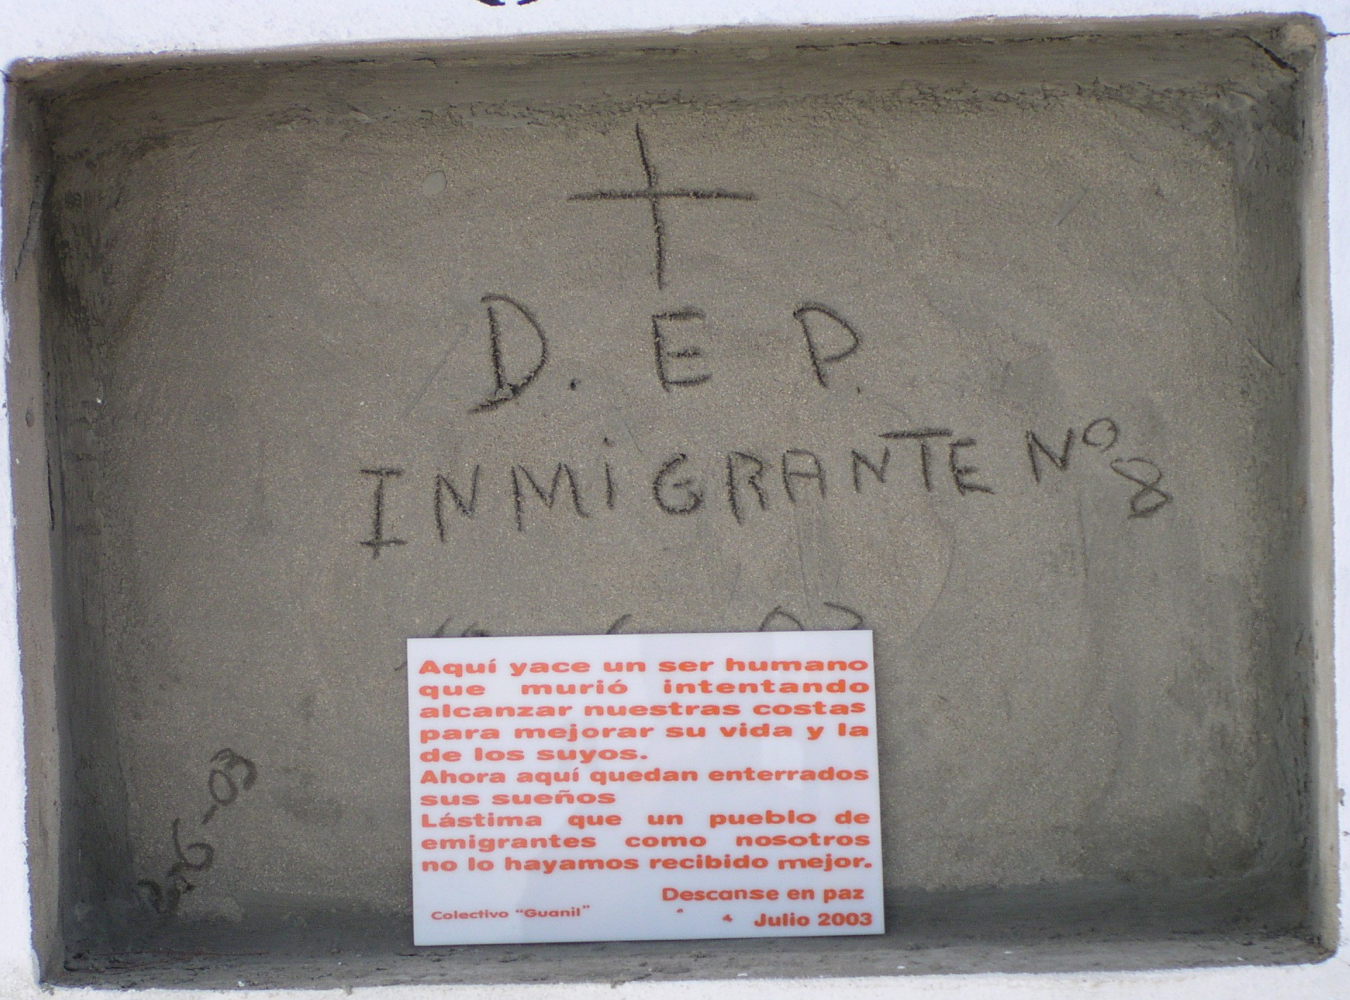 D. E P.
INMiGRANTE Nº 8
Aquí yace un ser humano
que murió intentando
alcanzar nuestras costas
para mejorar su vida y la
de los suyos.
Ahora aquí quedan enterrados
sus sueños
Lástima que un pueblo de
emigrantes como nosotros
no lo hayamos recibido mejor.
Descanse en paz
Colectivo "Guanil"
Julio 2003